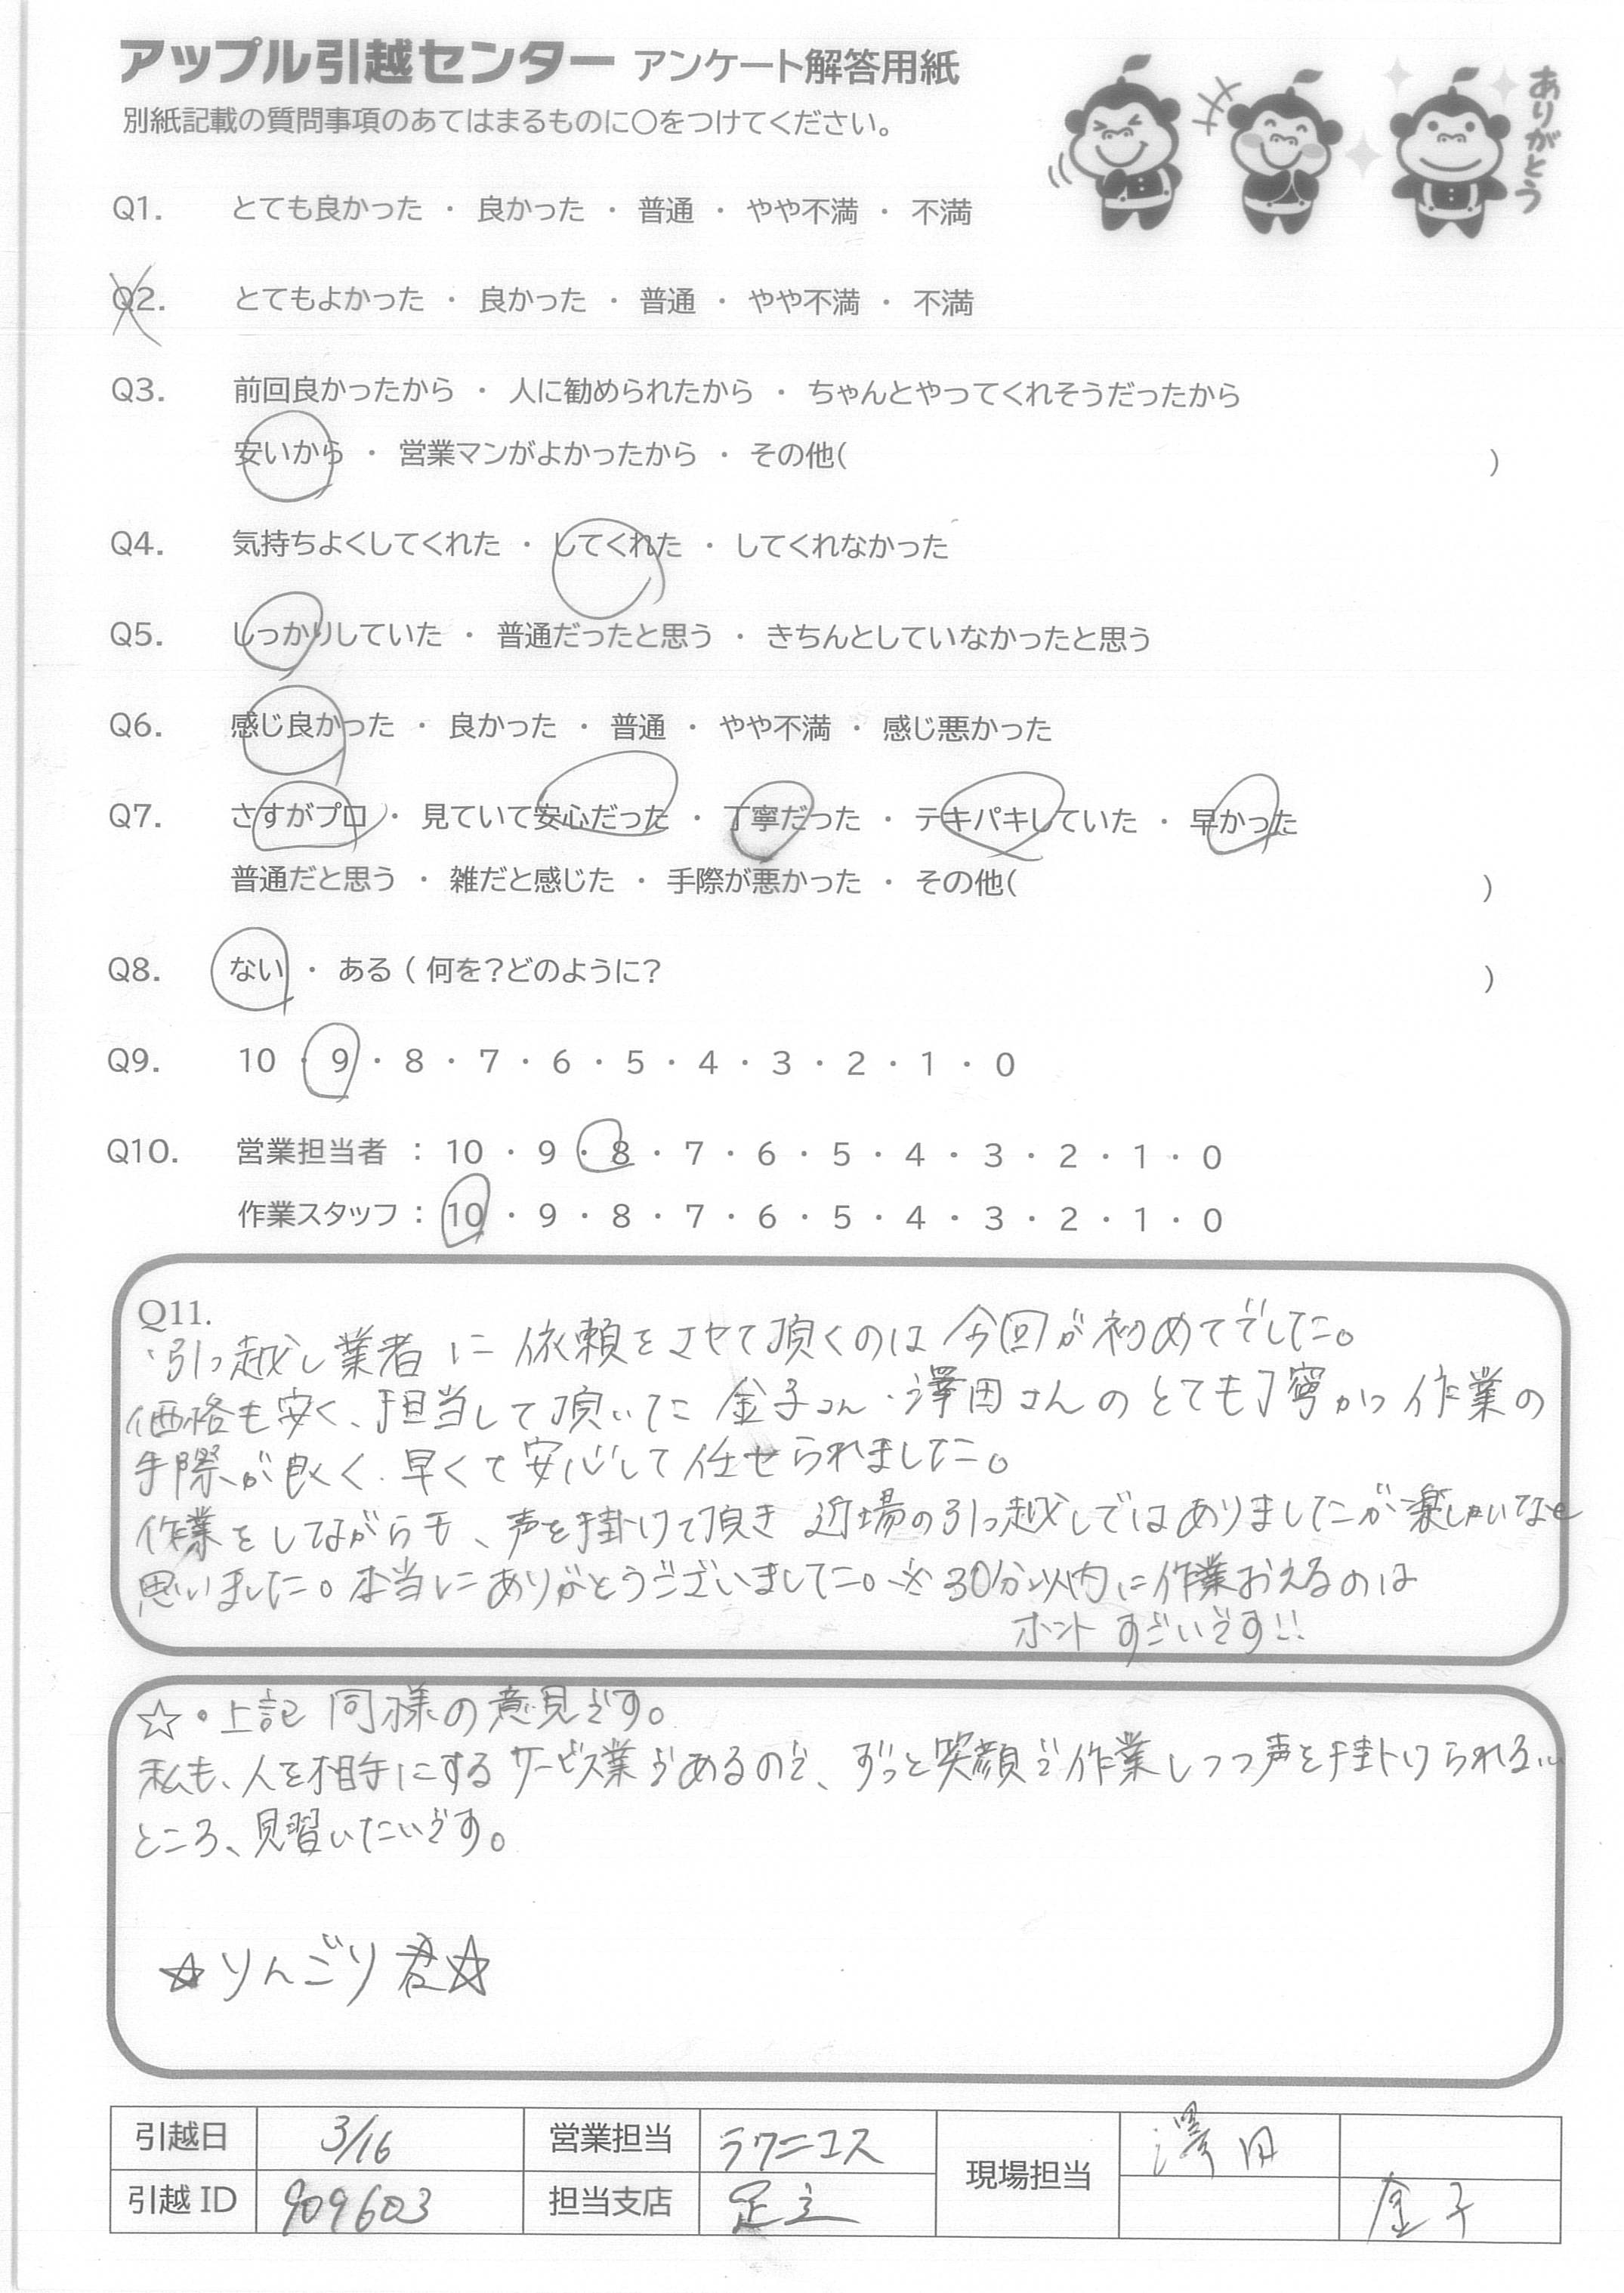 アップル引越センター アンケート解答用紙
別紙記載の質問事項のあてはまるものに〇をつけてください。
ありがとう
Q1. とても良かった ・ 良かった ・ 普通 ・ やや不満 ・ 不満
Q2. とてもよかった ・ 良かった ・ 普通 ・ やや不満 ・ 不満
Q3. 前回良かったから ・ 人に勧められたから ・ ちゃんとやってくれそうだったから
安いから ・ 営業マンがよかったから ・ その他( )
Q4. 気持ちよくしてくれた ・ してくれた ・ してくれなかった
Q5. しっかりしていた ・ 普通だったと思う ・ きちんとしていなかったと思う
Q6. 感じ良かった ・ 良かった ・ 普通 ・ やや不満 ・ 感じ悪かった
Q7. さすがプロ ・ 見ていて安心だった ・ 丁寧だった ・ テキパキしていた ・ 早かった
普通だと思う ・ 雑だと感じた ・ 手際が悪かった ・ その他( )
Q8. ない ・ ある ( 何を?どのように? )
Q9. 10 ・ 9 ・ 8 ・ 7 ・ 6 ・ 5 ・ 4 ・ 3 ・ 2 ・ 1 ・ 0
Q10. 営業担当者 : 10 ・ 9 ・ 8 ・ 7 ・ 6 ・ 5 ・ 4 ・ 3 ・ 2 ・ 1 ・ 0
作業スタッフ : 10 ・ 9 ・ 8 ・ 7 ・ 6 ・ 5 ・ 4 ・ 3 ・ 2 ・ 1 ・ 0
Q11.
・引っ越し業者に依頼をさせて頂くのは今回が初めてでした。
価格も安く、担当して頂いた金子さん・澤田さんのとても丁寧かつ作業の
手際が良く、早くて安心して任せられました。
作業をしながらも、声を掛けて頂き近場の引っ越しではありましたが楽しいなと
思いました。本当にありがとうございました。※30分以内に作業おえるのは
ホント すごいです!!
☆・上記同様の意見です。
私も、人を相手にするサービス業であるので、ずっと笑顔で作業しつつ声を掛けられる…
ところ、見習いたいです。
☆りんごり君☆
引越日 3/16 営業担当 ラクニコス 現場担当 澤田
引越ID 909603 担当支店 足立 金子